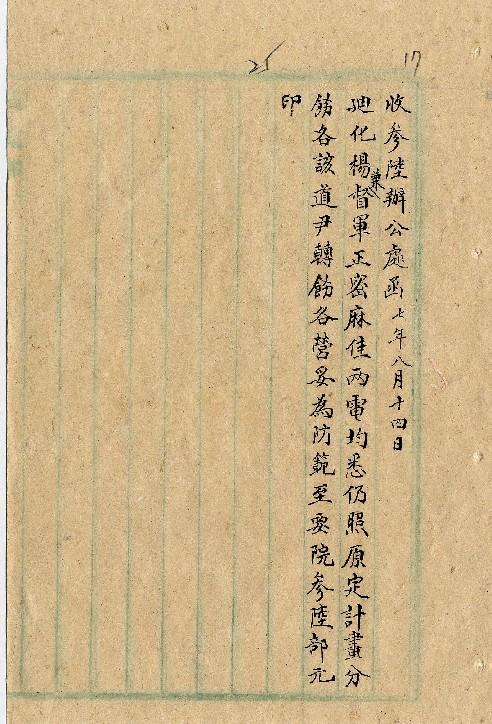 17
25
收參陸辦公處函 七年八月十四日
迪化楊兼督軍正密麻佳兩電均悉仍照原定計畫分
飭各該道尹轉飭各營妥為防範至要院參陸部元
印